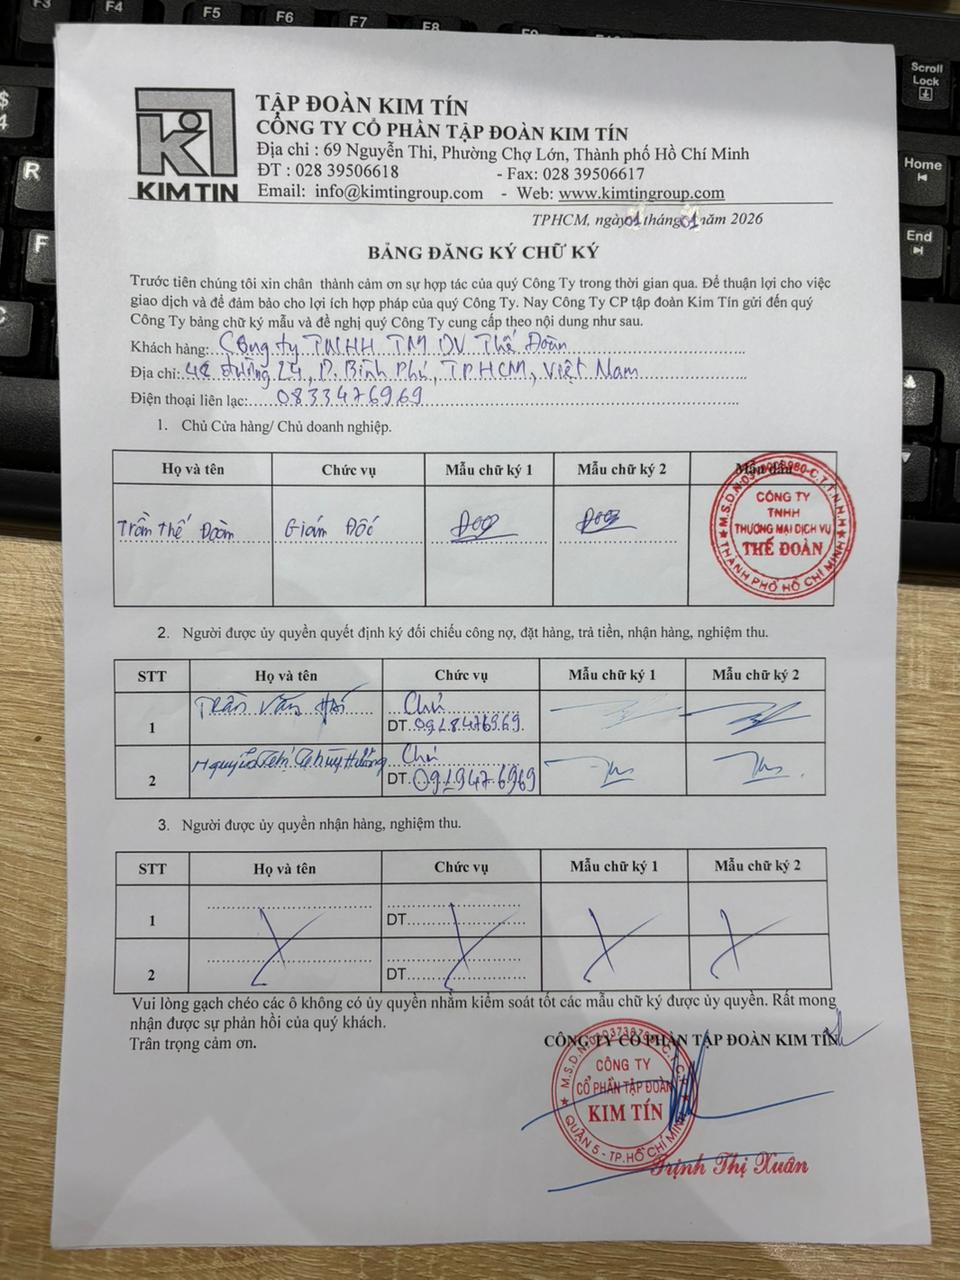 TẬP ĐOÀN KIM TÍN
CÔNG TY CỔ PHẦN TẬP ĐOÀN KIM TÍN
Địa chỉ : 69 Nguyễn Thi, Phường Chợ Lớn, Thành phố Hồ Chí Minh
ĐT : 028 39506618 - Fax: 028 39506617
Email: info@kimtingroup.com - Web: www.kimtingroup.com
KIM TIN
TPHCM, ngày 01 tháng 01 năm 2026
BẢNG ĐĂNG KÝ CHỮ KÝ
Trước tiên chúng tôi xin chân thành cảm ơn sự hợp tác của quý Công Ty trong thời gian qua. Để thuận lợi cho việc
giao dịch và để đảm bảo cho lợi ích hợp pháp của quý Công Ty. Nay Công Ty CP tập đoàn Kim Tín gửi đến quý
Công Ty bảng chữ ký mẫu và đề nghị quý Công Ty cung cấp theo nội dung như sau.
Khách hàng: Công ty TNHH TM DV Thế Đoàn
Địa chỉ: đường 24, P. Bình Phú, TPHCM, Việt Nam
Điện thoại liên lạc: 0833476969
1. Chủ Cửa hàng/ Chủ doanh nghiệp.
Họ và tên Chức vụ Mẫu chữ ký 1 Mẫu chữ ký 2 Mộc dấu
Trần Thế Đoàn Giám Đốc
CÔNG TY
TNHH
THƯƠNG MẠI DỊCH VỤ
THẾ ĐOÀN
THÀNH PHỐ HỒ CHÍ MINH
2. Người được ủy quyền quyết định ký đối chiếu công nợ, đặt hàng, trả tiền, nhận hàng, nghiệm thu.
STT Họ và tên Chức vụ Mẫu chữ ký 1 Mẫu chữ ký 2
1 Trần Văn Hải Chú
DT. 0918476969.
2 Nguyễn Thị Thúy Hường Chú
DT. 0919476969
3. Người được ủy quyền nhận hàng, nghiệm thu.
STT Họ và tên Chức vụ Mẫu chữ ký 1 Mẫu chữ ký 2
1 DT
2 DT
Vui lòng gạch chéo các ô không có ủy quyền nhằm kiểm soát tốt các mẫu chữ ký được ủy quyền. Rất mong
nhận được sự phản hồi của quý khách.
Trân trọng cảm ơn.
CÔNG TY CỔ PHẦN TẬP ĐOÀN KIM TÍN
CÔNG TY
CỔ PHẦN TẬP ĐOÀN
KIM TÍN
QUẬN 5 - TP. HỒ CHÍ MINH
Trịnh Thị Xuân